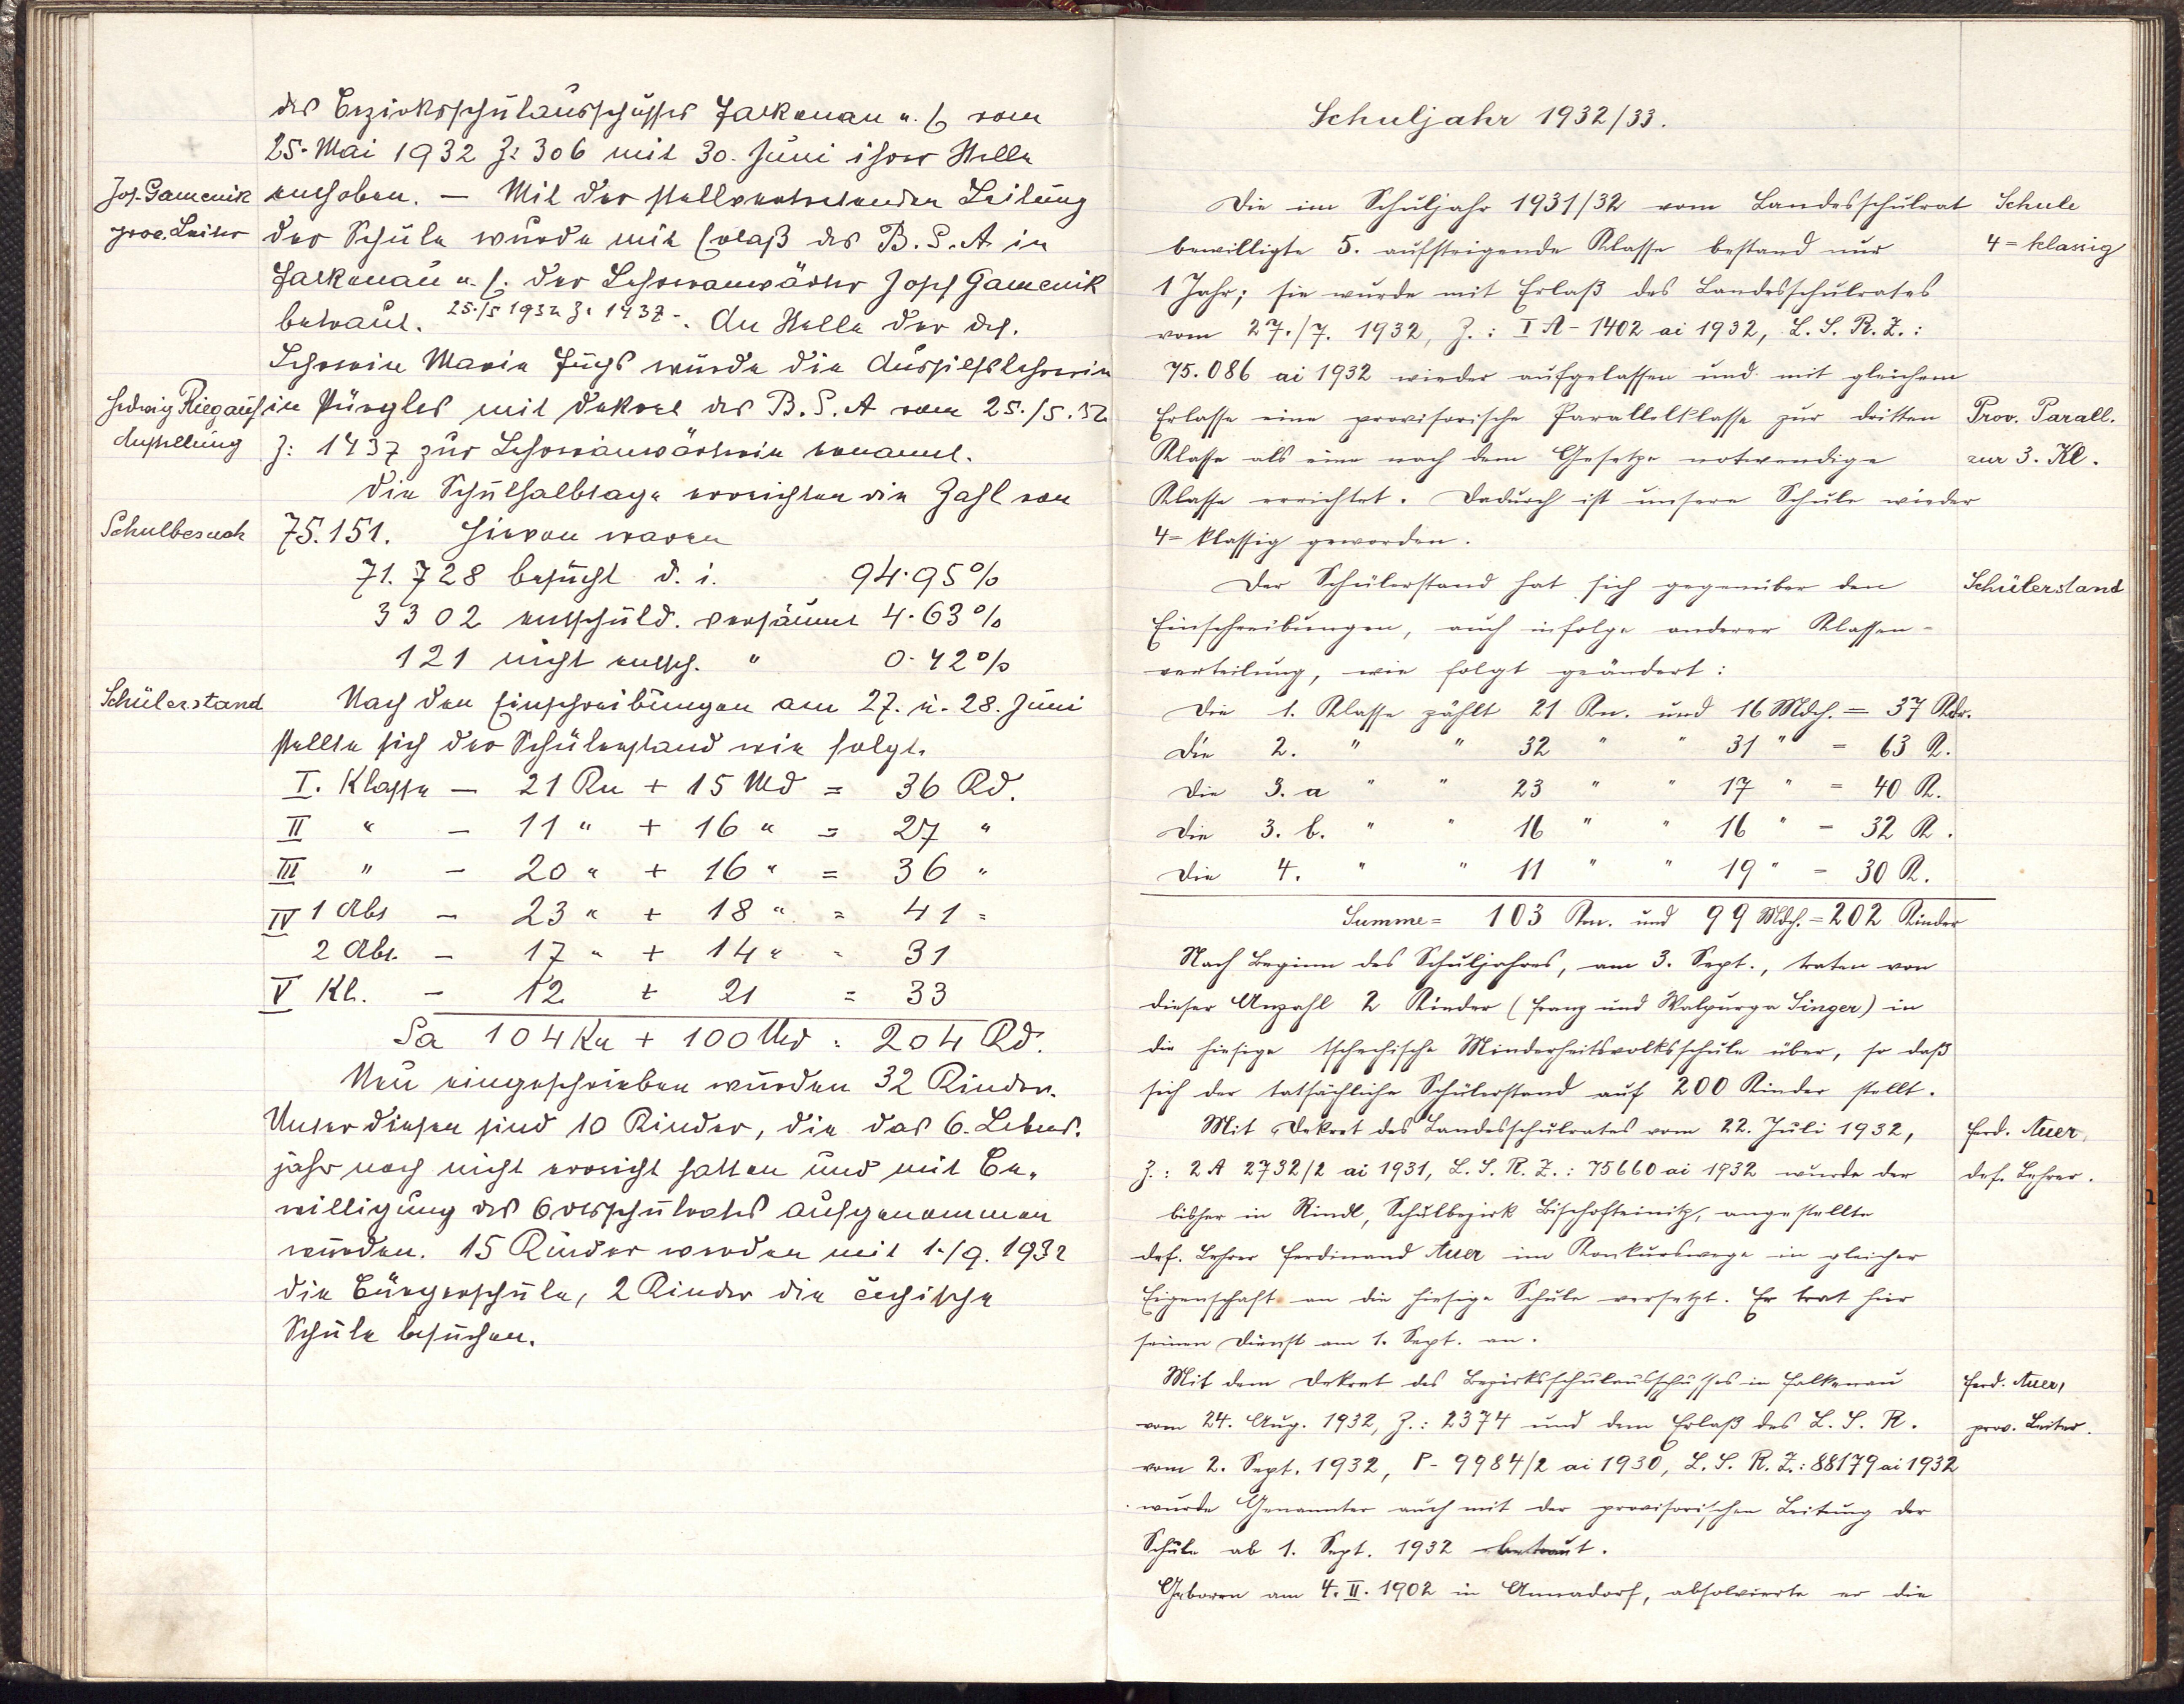 des Bezirksschulausschusses Falkenau a. E. vom
25. Mai 1932 Z: 306 mit 30. Juni ihrer Stelle
Jos. Gamenik
enthoben. — Mit der stellvertretenden Leitung
prov. Leiter
der Schule wurde mit Erlaß des B. S. A. in
Falkenau a. E. der Lehreranwärter Josef Gamenik
betraut. 25./5 1932 Z: 1437 -. An Stelle der def.
Lehrerin Maria Fuchs wurde die Aushilfslehrerin
Hedwig Riegauf
in Pürgles mit Dekret des B. S. A vom 25./5. 32
Anstellung
Z: 1437 zur Lehreranwärterin ernannt.
Die Schulhalbtage erreichten die Zahl von
Schulbesuch
75.151. Hievon waren
71.728 besucht d. i. 94.95%
3302 entschuld. versäumt 4.63%
121 nicht entsch. " 0.42%
Schülerstand
Nach den Einschreibungen am 27. u. 28. Juni
stellte sich der Schülerstand wie folgt.
I. Klasse – 21 Kn + 15 Md = 36 Kd.
II " – 11 " + 16 " = 27 "
III " – 20 " + 16 " = 36 "
IV 1 Abt – 23 " + 18 " = 41 "
2 Abt. – 17 " + 14 " = 31
V Kl. – 12 + 21 = 33
Sa 104 Kn + 100 Md = 204 Kd.
Neu eingeschrieben wurden 32 Kinder.
Unter diesen sind 10 Kinder, die das 6. Lebens-
jahr noch nicht erreicht hatten und mit Be-
willigung des Ortsschulrates aufgenommen
wurden. 15 Kinder werden mit 1./9. 1932
die Bürgerschule, 2 Kinder die čechische
Schule besuchen.
Schuljahr 1932/33.
Die im Schuljahr 1931/32 vom Landesschulrat
Schule
bewilligte 5. aufsteigende Klasse bestand nur
4=klassig
1 Jahr; sie wurde mit Erlaß des Landesschulrates
vom 27./7. 1932, Z.: I A - 1402 ai 1932, L. S. R. Z.:
75.086 ai 1932 wieder aufgelassen und mit gleichem
Erlasse eine provisorische Parallelklasse zur dritten
Prov. Parall.
Klasse als eine nach dem Gesetze notwendige
zur 3. Kl.
Klasse errichtet. Dadurch ist unsere Schule wieder
4=klassig geworden.
Der Schülerstand hat sich gegenüber den
Schülerstand
Einschreibungen, auch infolge anderer Klassen-
verteilung, wie folgt geändert:
Die 1. Klasse zählt 21 Kn. und 16 Mdch. = 37 Kdr.
Die 2. " " 32 " " 31 " = 63 K.
Die 3. a " " 23 " " 17 " = 40 K.
Die 3. b. " " 16 " " 16 " = 32 K.
Die 4. " " 11 " " 19 " = 30 K.
Summe = 103 Kn. und 99 Mdch. = 202 Kinder
Nach Beginn des Schuljahres, am 3. Sept., traten von
dieser Anzahl 2 Kinder (Franz und Walpurga Singer) in
die hiesige tschechische Minderheitsvolksschule über, so daß
sich der tatsächliche Schülerstand auf 200 Kinder stellt.
Mit Dekret des Landesschulrates vom 22. Juli 1932,
Ferd. Auer,
Z.: 2 A 2732/2 ai 1931, L. S. R. Z.: 75660 ai 1932 wurde der
def. Lehrer.
bisher in Rindl, Schulbezirk Bischofteinitz, angestellte
def. Lehrer Ferdinand Auer im Konkurswege in gleicher
Eigenschaft an die hiesige Schule versetzt. Er trat hier
seinen Dienst am 1. Sept. an.
Mit dem Dekret des Bezirksschulausschusses in Falkenau
Ferd. Auer,
vom 24. Aug. 1932, Z.: 2374 und dem Erlaß des L. S. R.
prov. Leiter.
vom 2. Sept. 1932, P- 9984/2 ai 1930, L. S. R. Z.: 88179 ai 1932
wurde Genannter auch mit der provisorischen Leitung der
Schule ab 1. Sept. 1932 betraut.
Geboren am 4. II. 1902 in Annadorf, absolvierte er die